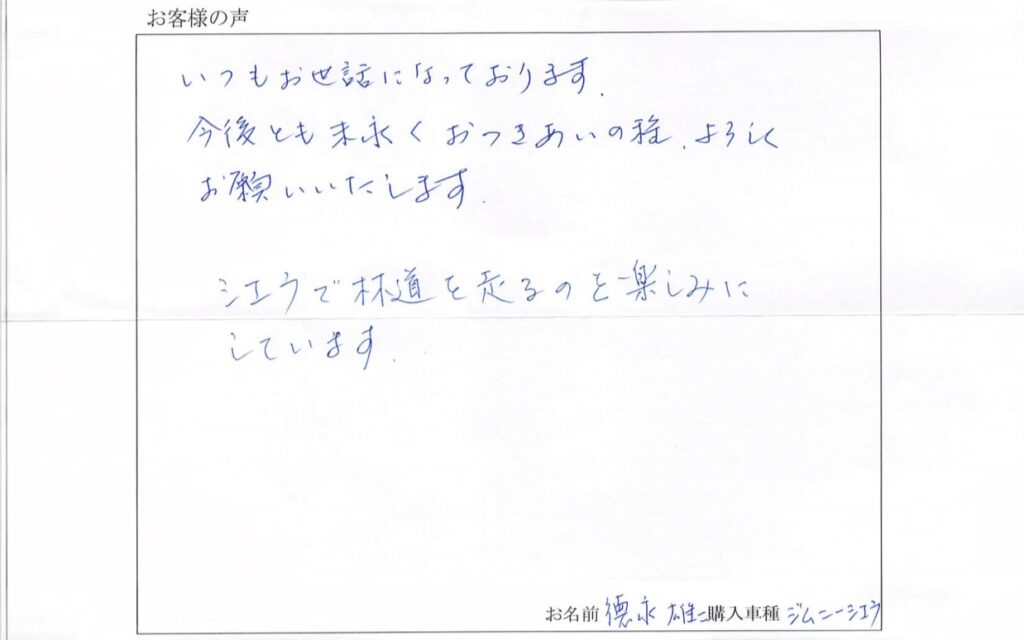 お客様の声
いつもお世話になっております.
今後とも末永くおつきあいの程、よろしく
お願いいたします.
シエラで林道を走るのを楽しみに
しています.
お名前 德永 雄二 購入車種 ジムニーシエラ